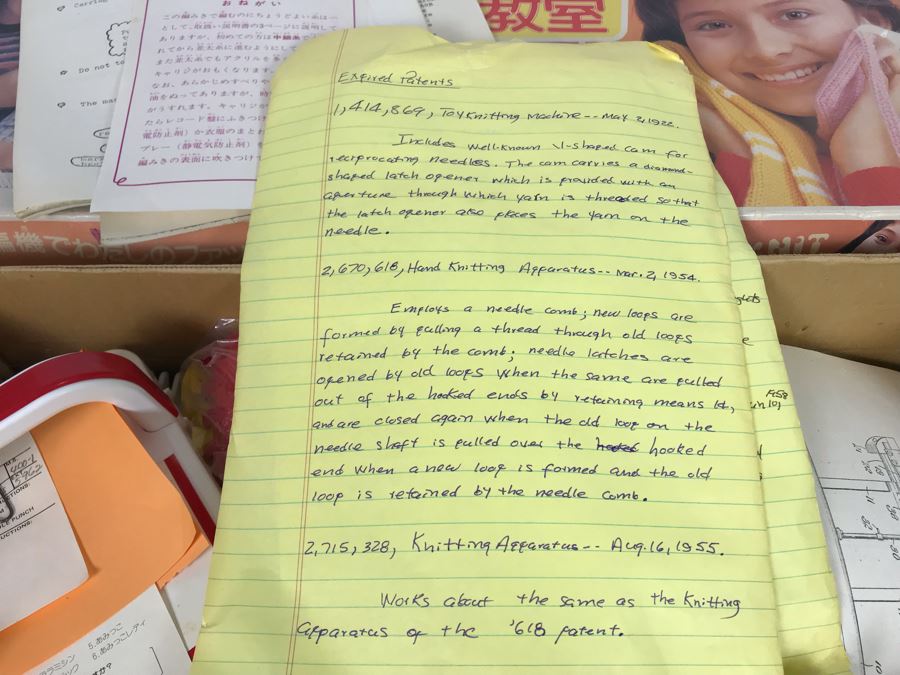 教室
おねがい
この編みきで編むのにちょうどよい糸は
て、取扱い説明書の3ページに説明して
ありますが、初めての方は中細糸で
れてから並太糸に進むようにして
また並太糸でもアクリルを多
キャリジがおもくなります。
なお、あらかじめすべりや
油をぬってありますが、時
がうすれます。キャリジが
たらレコード盤にふきつけ
電防止剤)か衣服のまとわ
プレー(静電気防止剤)
編みきの表面に吹きつけて
Carrying
Do not to
The ma
編機でわたしのファッ
Expired Patents
1,414,869, Toy Knitting Machine -- May 2, 1922.
Includes well-known V-shaped cam for
reciprocating needles. The cam carries a diamond-
shaped latch opener which is provided with an
aperture through which yarn is threaded so that
the latch opener also places the yarn on the
needle.
2,670,618, Hand Knitting Apparatus -- Mar. 2, 1954.
Employs a needle comb; new loops are
formed by pulling a thread through old loops
retained by the comb; needle latches are
opened by old loops when the same are pulled
out of the hooked ends by retaining means 1d,
and are closed again when the old loop on the
needle shaft is pulled over the hooked
end when a new loop is formed and the old
loop is retained by the needle comb.
2,715,328, Knitting Apparatus -- Aug. 16, 1955.
Works about the same as the Knitting
Apparatus of the '618 patent.
PUNCH
CTIONS:
5.あみつこ
5.あみつこレディ